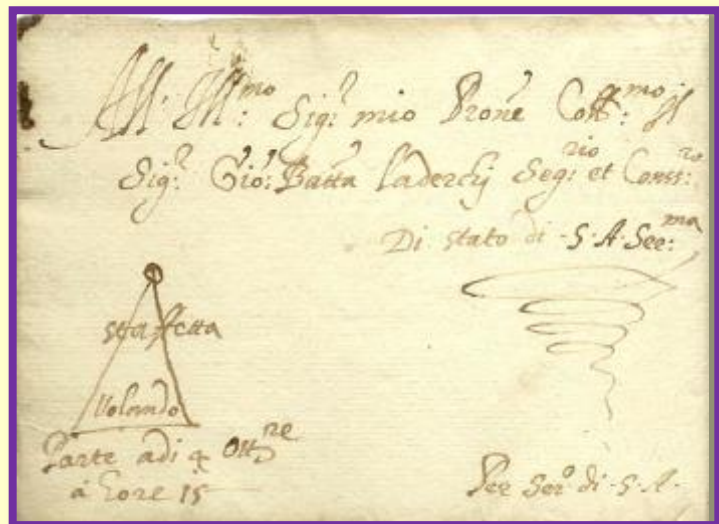 All' Ill:mo Sig:r mio Prone Coll:mo il
Sig:r Gio: Batta Laderchj Seg:rio et Conss:ro
Di stato di S. A. Ser:ma
staffetta
Volando
Parte adi 4 Ott:re
à hore 15
Per Ser:o di S. A.